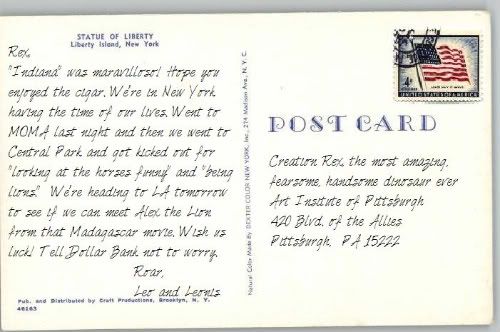 STATUE OF LIBERTY
Liberty Island, New York
Rex,
"Indiana" was maravilloso! Hope you
enjoyed the cigar. We're in New York
having the time of our lives. Went to
MOMA last night and then we went to
Central Park and got kicked out for
"looking at the horses funny" and "being
lions." We're heading to LA tomorrow
to see if we can meet Alex the Lion
from that Madagascar movie. Wish us
luck! Tell Dollar Bank not to worry.
Roar,
Leo and Leonis
Pub. and Distributed by Craft Productions, Brooklyn, N. Y.
46263
Natural Color Made By DEXTER COLOR NEW YORK, Inc., 274 Madison Ave., N. Y. C.
4¢
UNITED STATES OF AMERICA
POST CARD
Creation Rex, the most amazing,
fearsome, handsome dinosaur ever
Art Insitute of Pittsburgh
420 Blvd. of the Allies
Pittsburgh, PA 15222